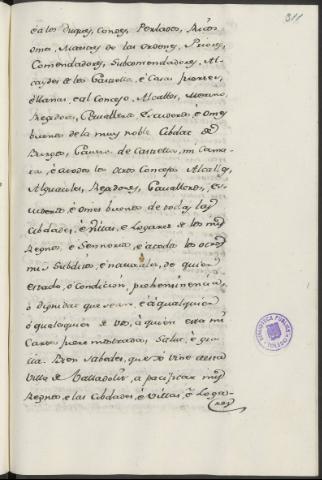 311
éalos Duques, Condes, Perlados, Ricos
omes, Maestres de las ordenes, Priores,
Comendadores, Subcomendadores, Al-
caydes de los Castillos, é Casas fuertes,
é llanas, é al Concejo, Alcalldes, Merino,
Regidores, Cavalleros, Escuderos, é omes
buenos de la muy noble Cibdat de
Burgos, Cavesa de Castilla, mi Cama-
ra, é atodos los otros Concejos Alcalldes,
Alguaciles, Regidores, Cavalleros, es-
cuderos, é omes buenos de todas las
Cibdades, é villas, é Logares de los mis
Regnos, é Sennorios, é atodos los otros
mis Subditos, é naturales, de qualquier
estado, ó condicion, preheminencia,
ó dignidat que sean, é á qualquier
ó qualesquier de vos, á quien esta mi
Carta fuere mostrada, Salut, é gra-
cia. Bien Sabedes, que Yo vine aesta
Villa de Valladolit, a pacificar mis
Regnos, é las Cibdades, é villas, é Loga-
res
BIBLIOTECA PUBLICA TOLEDO